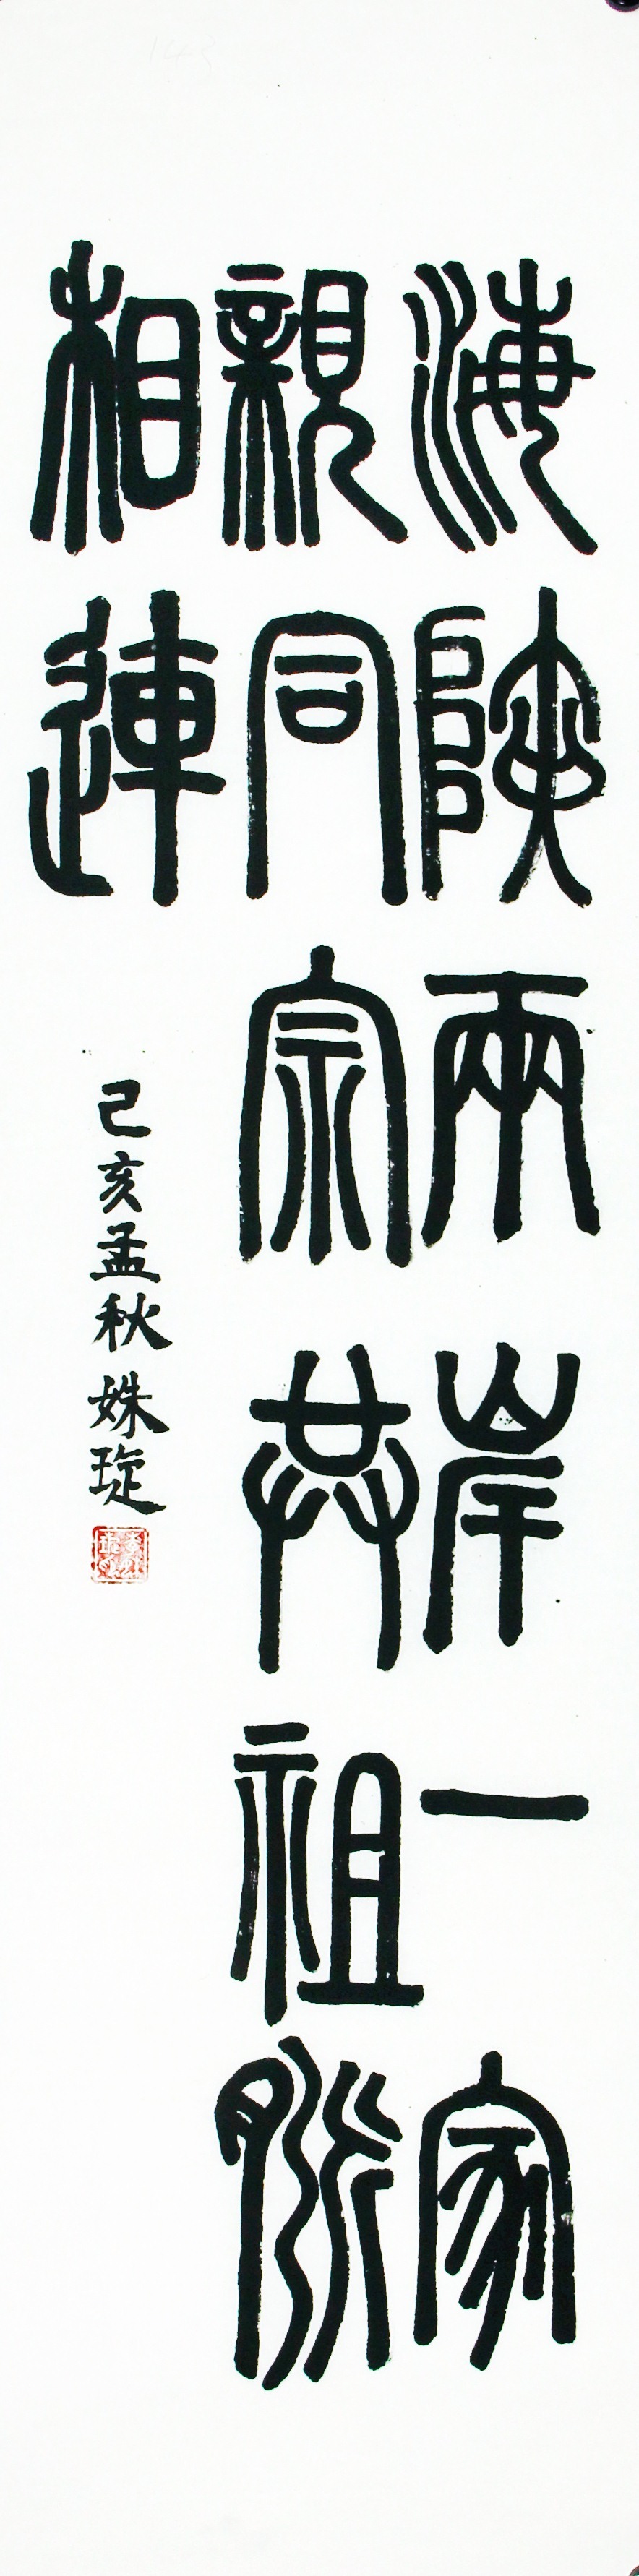 海峽兩岸一家
親同宗共祖脈
相連
己亥孟秋姝